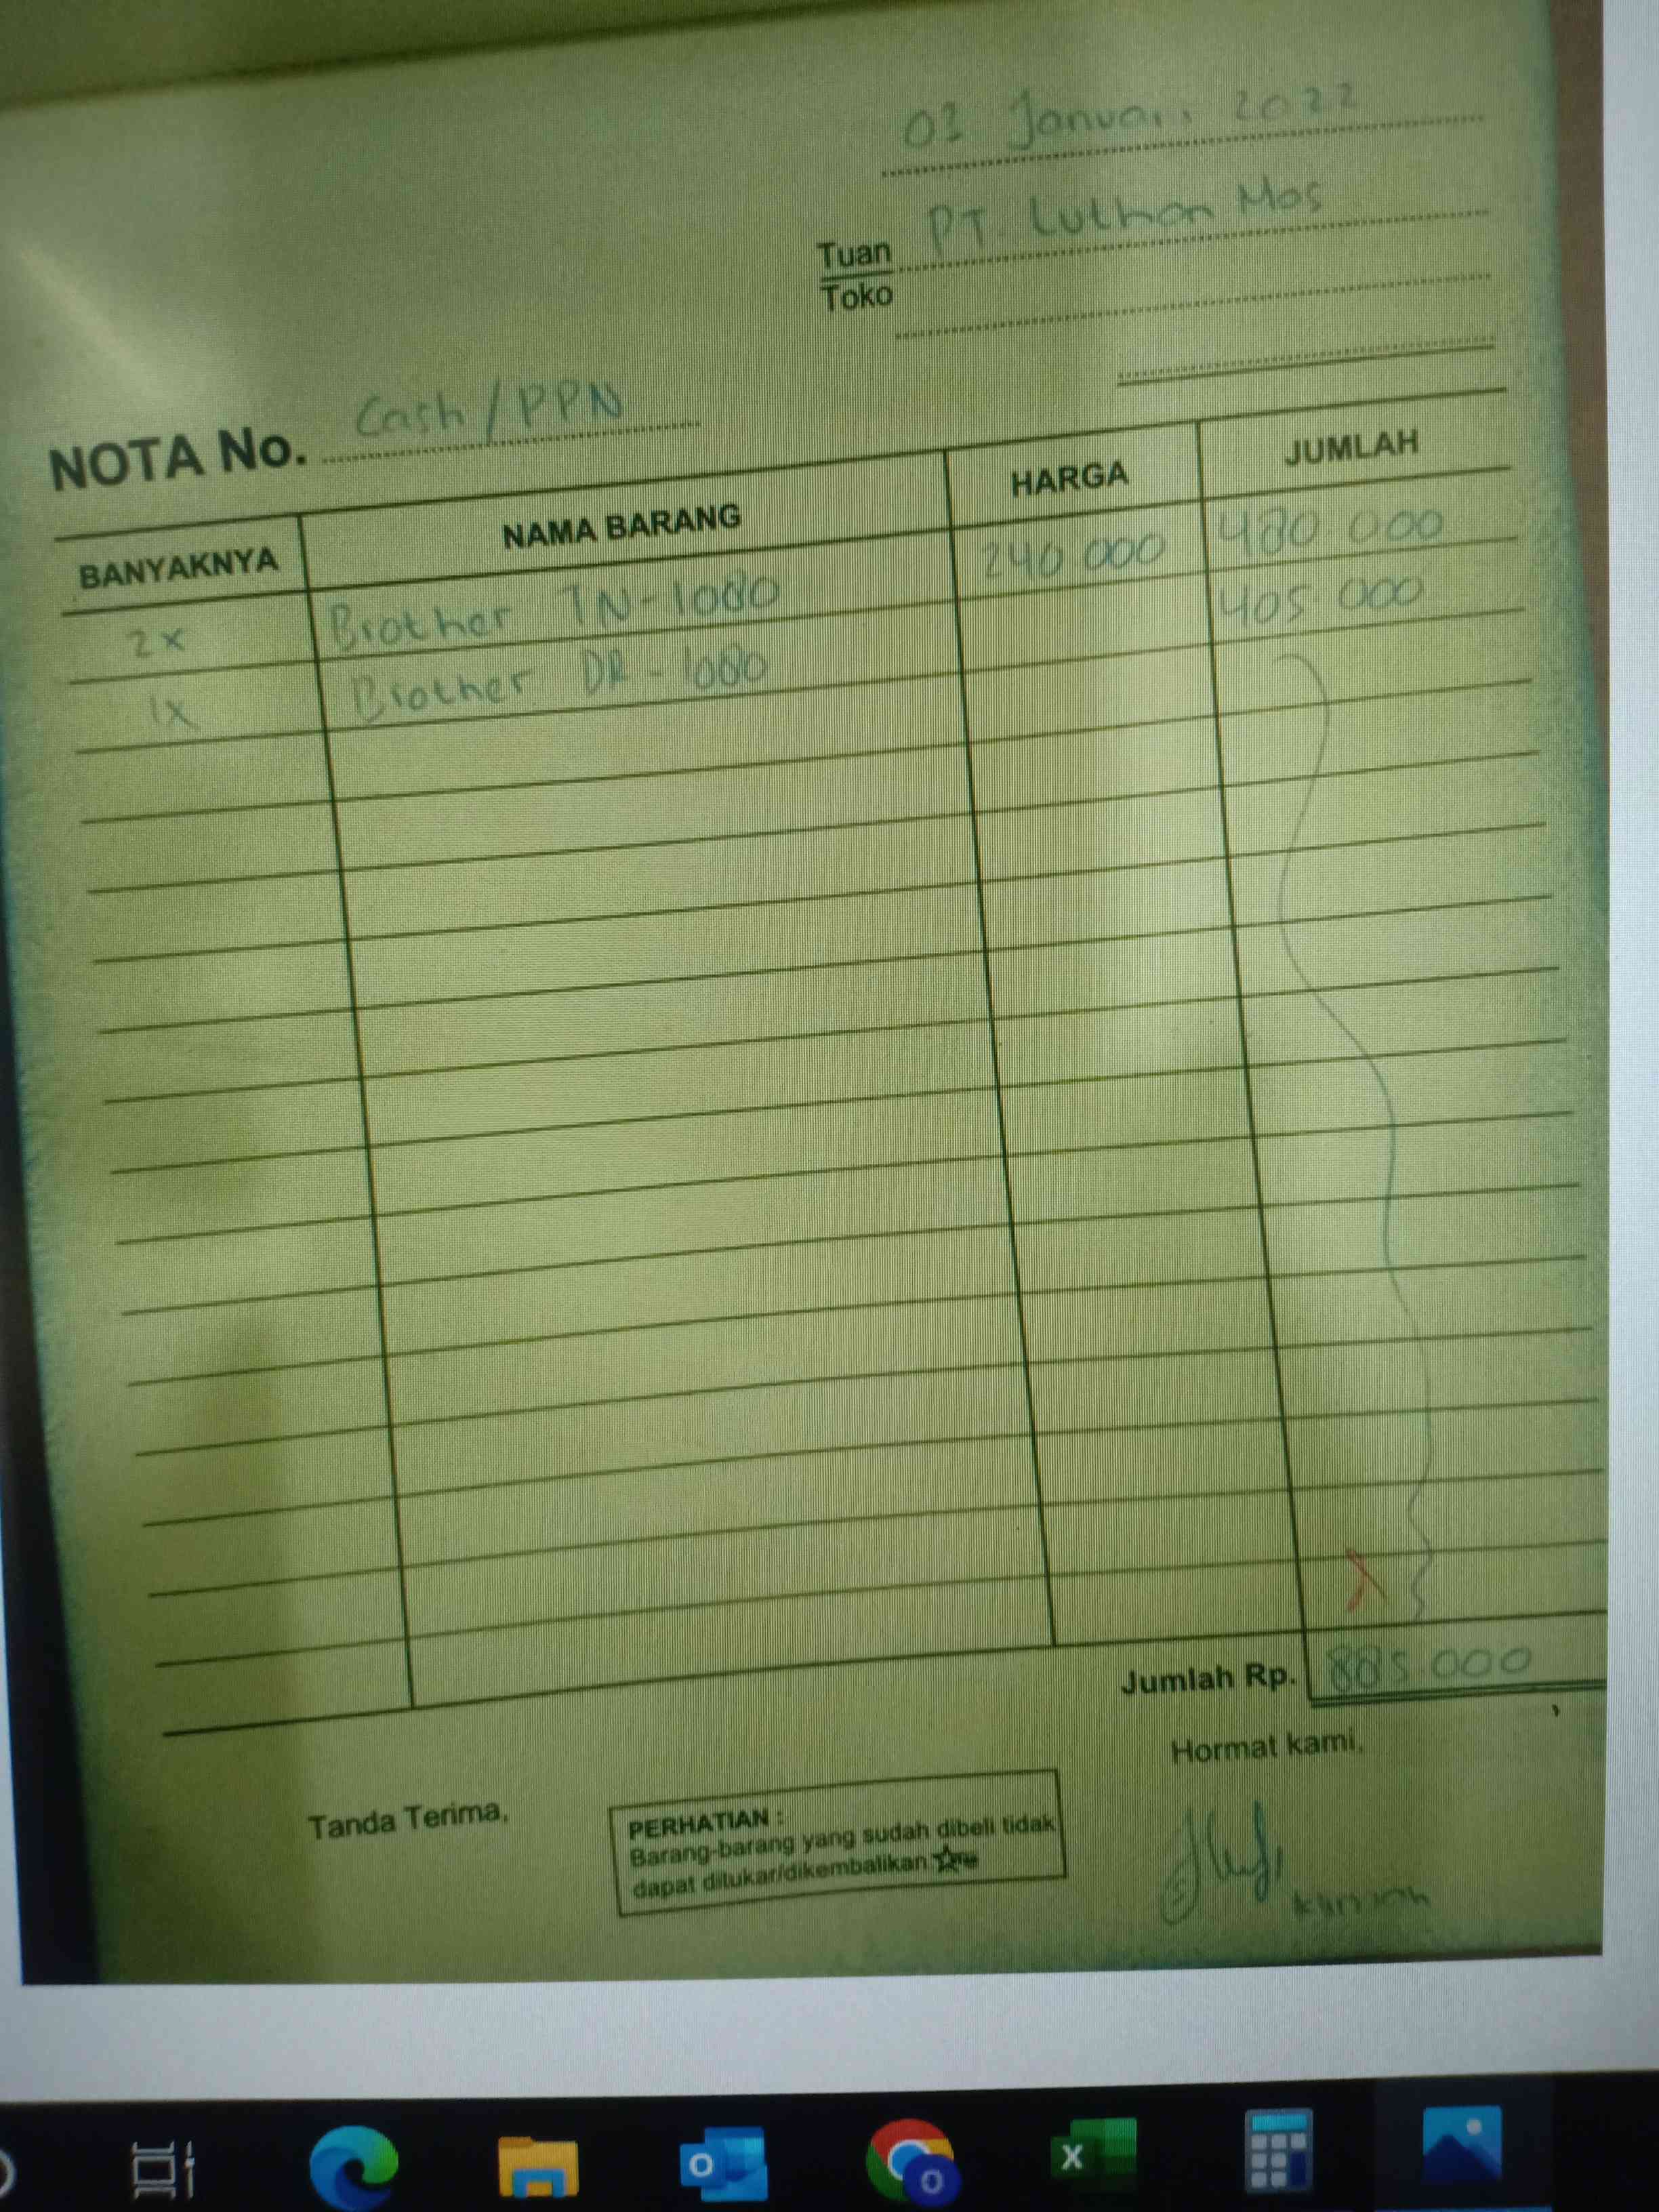 03 Januari 2022
Tuan PT. Luthan Mas
Toko
NOTA No. Cash/PPN
BANYAKNYA NAMA BARANG HARGA JUMLAH
2x Brother TN-1080 240.000 480 000
1x Brother DR-1080 405.000
Jumlah Rp. 885.000
Tanda Terima,
PERHATIAN :
Barang-barang yang sudah dibeli tidak
dapat ditukar/dikembalikan
Hormat kami,